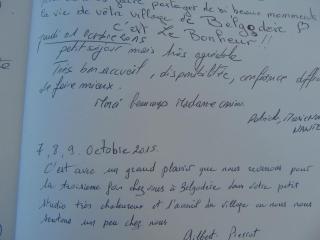 partager de si beaux moments
la vie de vôtre village de Belgodère
C'est Le Bonheur !!
petit séjour mais très agréable
Très bon accueil, disponibilité,
de faire mieux.
Merci beaucoup Madame
Patrick,
7, 8, 9, Octobre 2015.
C'est avec un grand plaisir que nous revenons pour
la troisième fois chez vous à Belgodère dans votre petit
studio très chaleureux et l'accueil du village où nous nous
sentons un peu chez nous
Gilbert